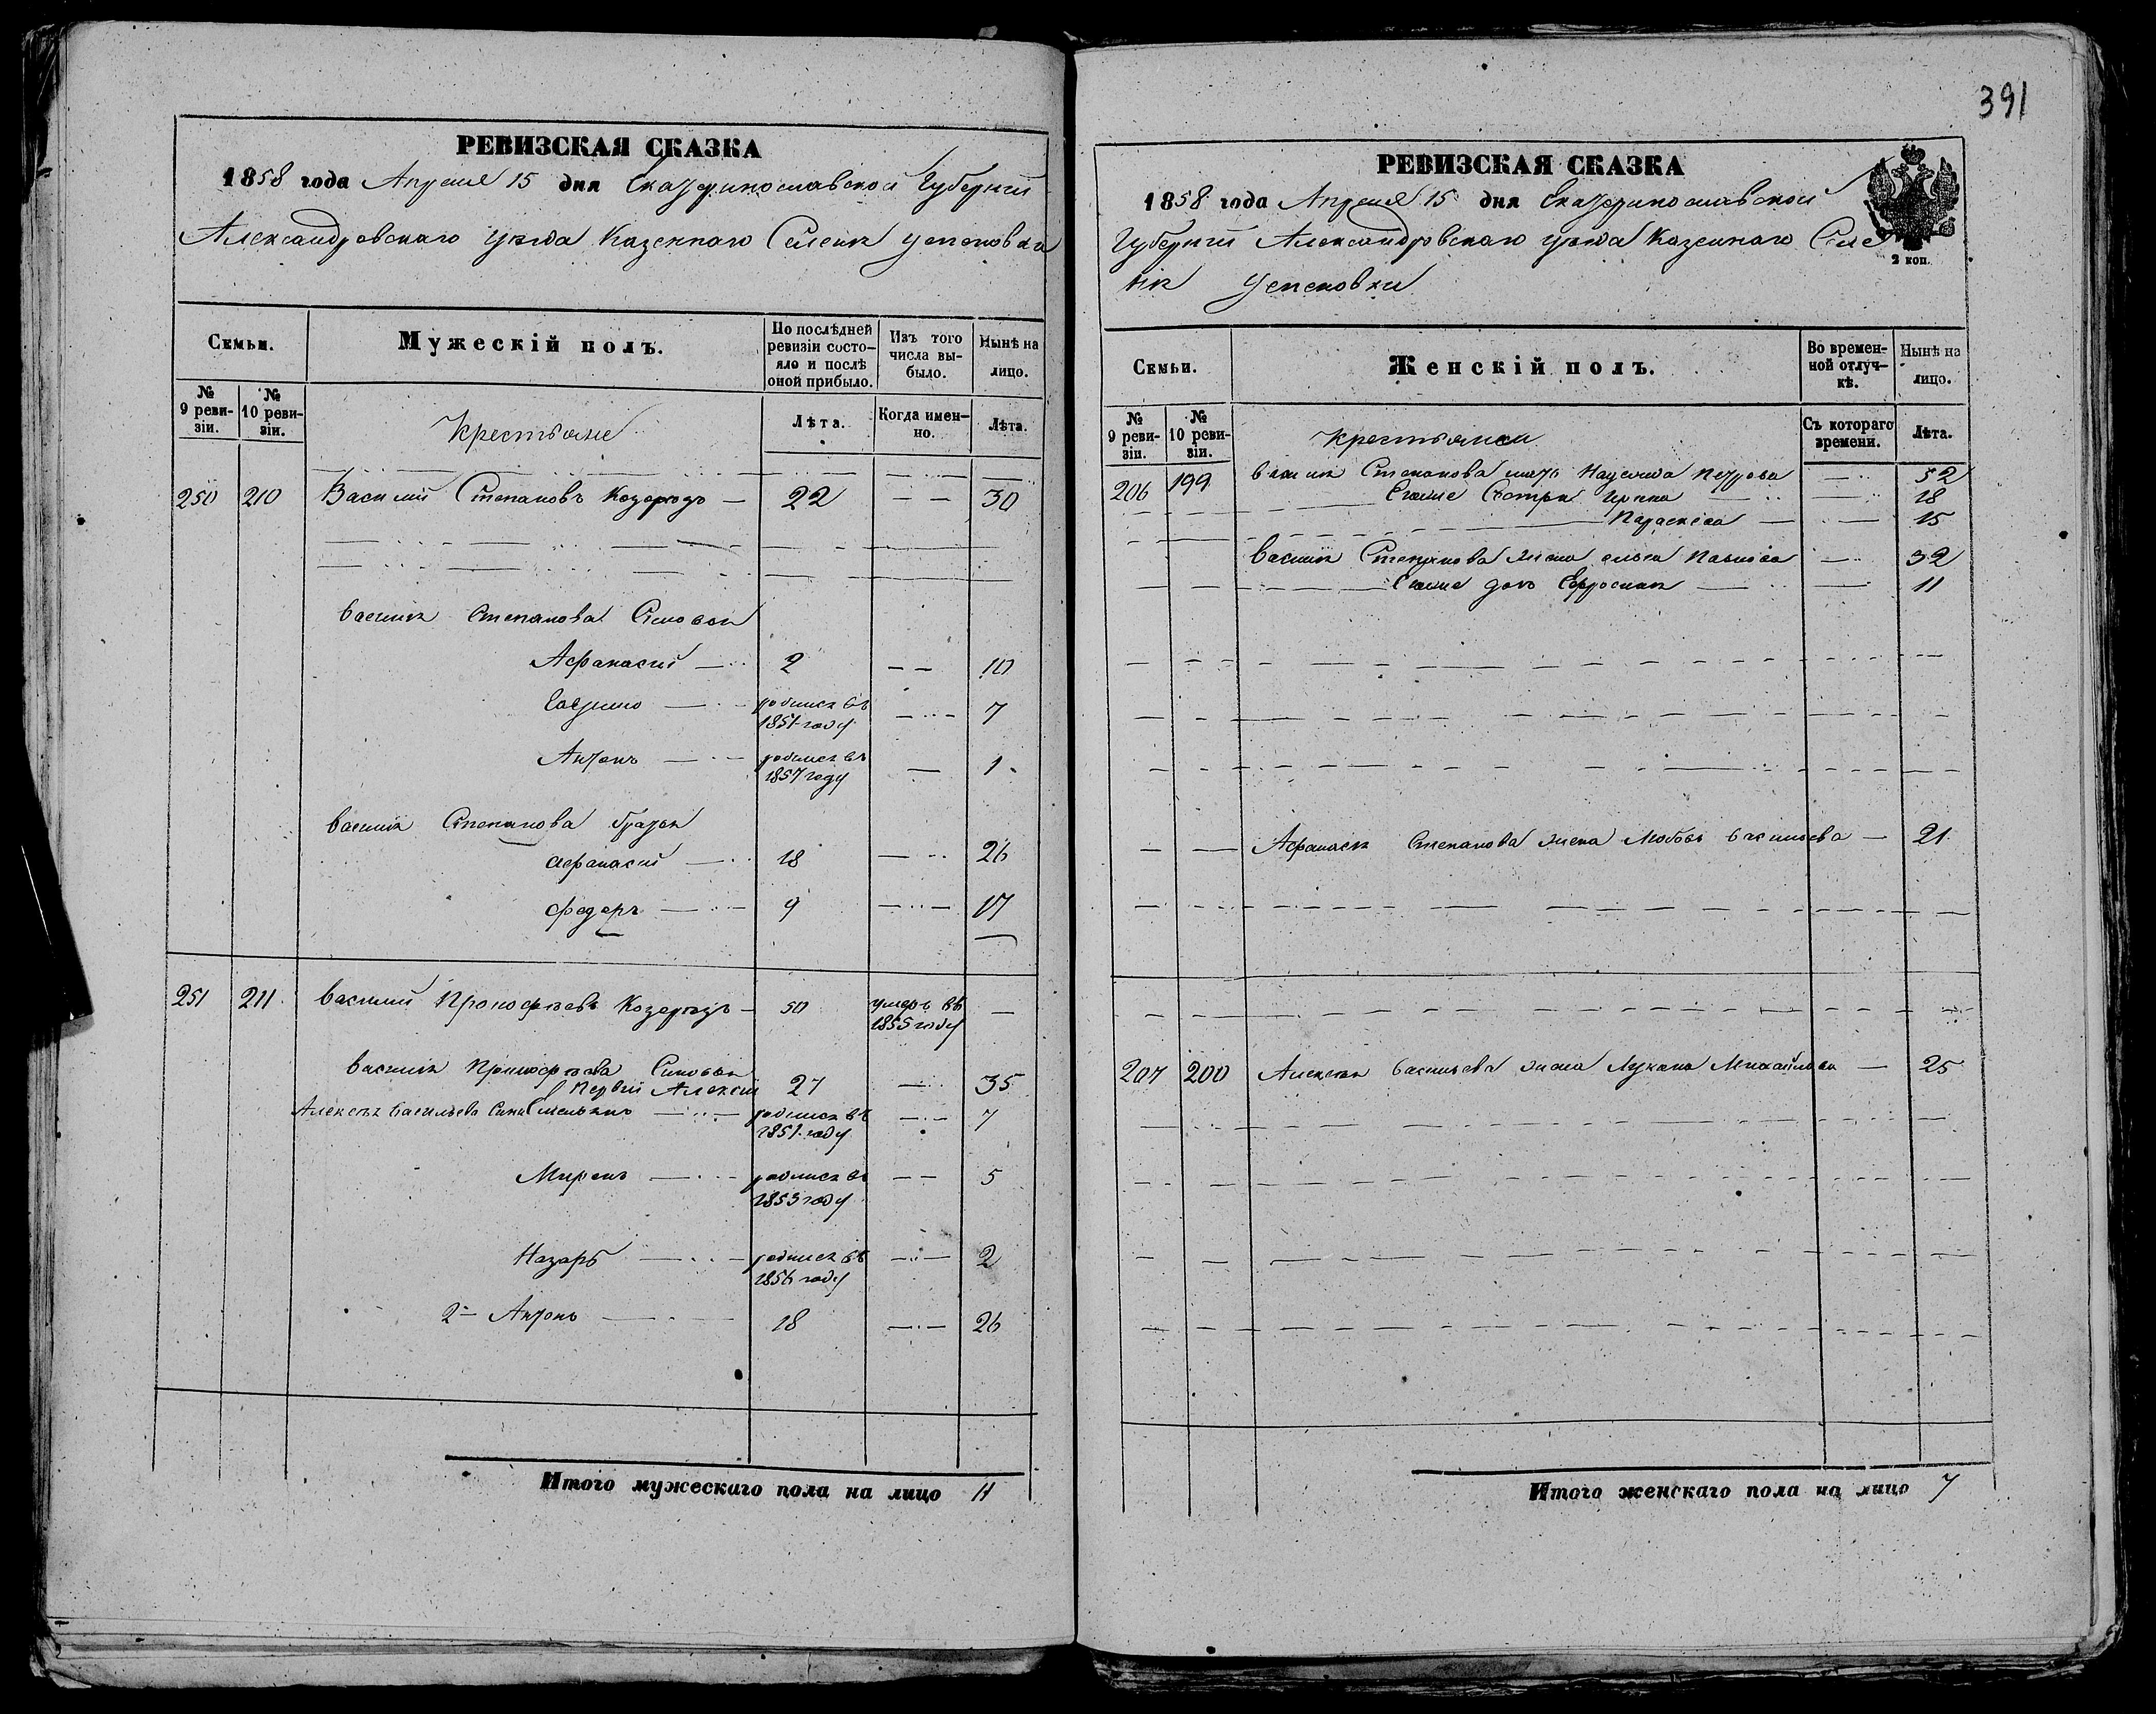 РЕВИЗСКАЯ СКАЗКА
1858 года Апреля 15 дня Екатеринославской Губернии
Александровскаго уезда Казеннаго Селенія Успеновки
Семьи.
Мужескій полъ.
По послѣдней ревизіи состояло и послѣ оной прибыло.
Изъ того числа выбыло.
Нынѣ на лицо.
№ 9 ревизіи.
№ 10 ревизіи.
Крестьяне
Лѣта.
Когда именно.
Лѣта.
250 210 Василий Степановъ Козерюзъ 22 30
Василія Степанова Синовья
Афанасий 2 10
родился въ 1851 году 7
Антонъ родился въ 1857 году 1
Василія Степанова братья
Афанасий 18 26
Федоръ 9 17
251 211 Василий Прокофьевъ Козерюзъ 50 умеръ въ 1855 году
Василія Прокофьева Синовья
Первий Алексей 27 35
Алексѣя Васильева Сини Емельянъ родился въ 1851 году 7
Миронъ родился въ 1853 году 5
Назаръ родился въ 1856 году 2
2й Антонъ 18 26
Итого мужескаго пола на лицо 11
391
РЕВИЗСКАЯ СКАЗКА
1858 года Апреля 15 дня Екатеринославской
Губернии Александровскаго уезда Казеннаго Селе
нія Успеновки
2 коп.
Семьи.
Женскій полъ.
Во временной отлучкѣ.
Нынѣ на лицо.
№ 9 ревизіи.
№ 10 ревизіи.
Крестьянки
Съ котораго времени.
Лѣта.
206 199 Василія Степанова мать Надежда Петрова 52
Его же Сестри Ирина 18
Параскева 15
Василія Степанова жена Павлова 32
Его же дочь Ефросинія 11
Афанасія Степанова жена Любовь Васильева 21
207 200 Алексѣя Васильева жена Лукия Михайлова 25
Итого женскаго пола на лицо 7